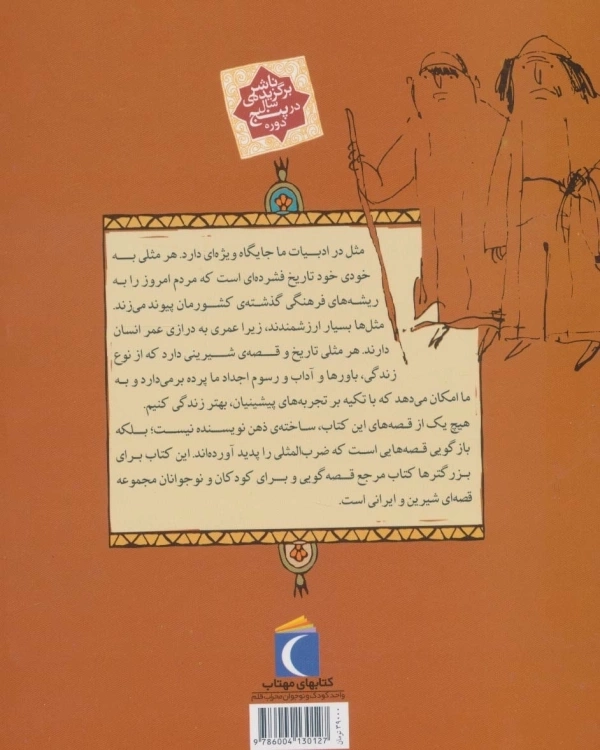 ناشر
برگزیده‌ی
سال
در پنج
دوره
مثل در ادبیات ما جایگاه ویژه‌ای دارد. هر مثلی به
خودی خود تاریخ فشرده‌ای است که مردم امروز را به
ریشه‌های فرهنگی گذشته‌ی کشورمان پیوند می‌زند.
مثل‌ها بسیار ارزشمندند، زیرا عمری به درازی عمر انسان
دارند. هر مثلی تاریخ و قصه‌ی شیرینی دارد که از نوع
زندگی، باورها و آداب و رسوم اجداد ما پرده برمی‌دارد و به
ما امکان می‌دهد که با تکیه بر تجربه‌های پیشینیان، بهتر زندگی کنیم.
هیچ یک از قصه‌های این کتاب، ساخته‌ی ذهن نویسنده نیست؛ بلکه
بازگویی قصه‌هایی است که ضرب‌المثلی را پدید آورده‌اند. این کتاب برای
بزرگترها کتاب مرجع قصه‌گویی و برای کودکان و نوجوانان مجموعه
قصه‌ای شیرین و ایرانی است.
کتابهای مهتاب
واحد کودک و نوجوان محراب قلم
۳۹۰۰۰ تومان
9 786004 130127